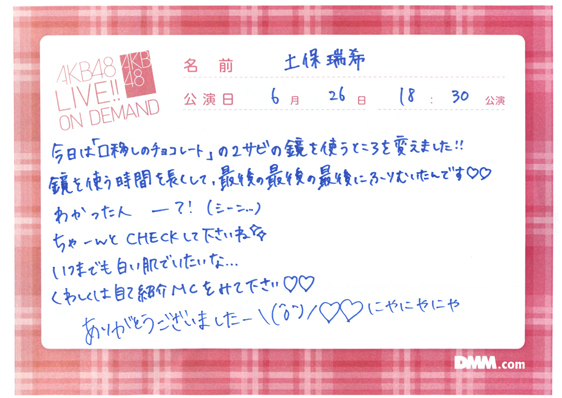 AKB48
LIVE!!
ON DEMAND
AKB
48
名 前 土保瑞希
公演日 6 月 26 日 18 : 30 公演
今日は「口移しのチョコレート」の2サビの鏡を使うところを変えました!!
鏡を使う時間を長くして、最後の最後の最後にふりむいたんです♡♡
わかった人 ーて! (シーン...)
ちゃーんと CHECKして下さいね☆☆
いつまでも白い肌でいたいな...
くわしくは自己紹介MCをみて下さい♡♡
ありがとうございましたー\(^o^)/♡♡にゃにゃにゃ
DMM.com